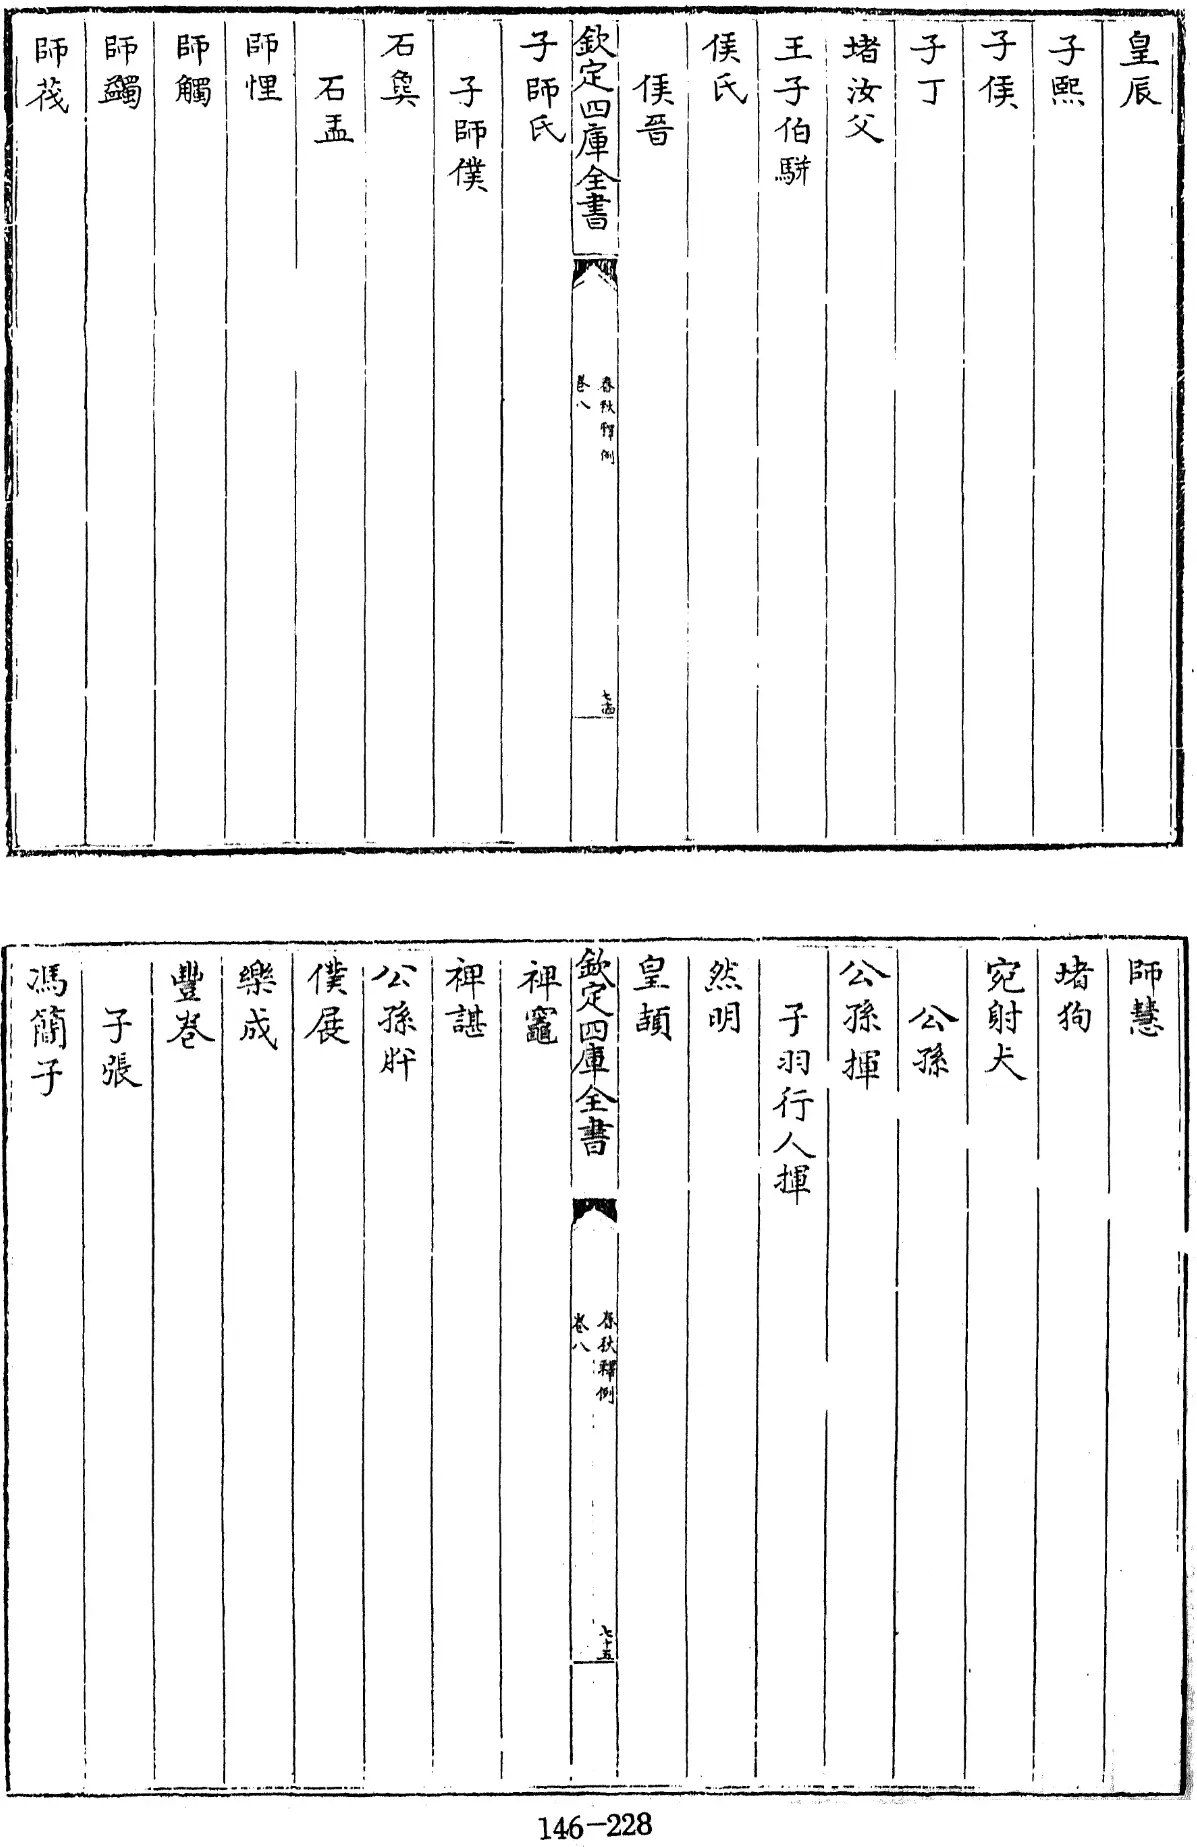 皇辰
子熙
子侯
子丁
堵汝父
王子伯駢
侯氏
侯晉
欽定四庫全書
春秋釋例
卷八
子師氏
子師僕
石㚟
石盂
師悝
師觸
師蠲
師茷
師慧
堵狗
宛射犬
公孫
公孫揮
子羽行人揮
然明
皇頡
欽定四庫全書
春秋釋例
卷八
七十五
裨竈
裨諶
公孫肸
僕展
樂成
豐卷
子張
馮簡子
146-228